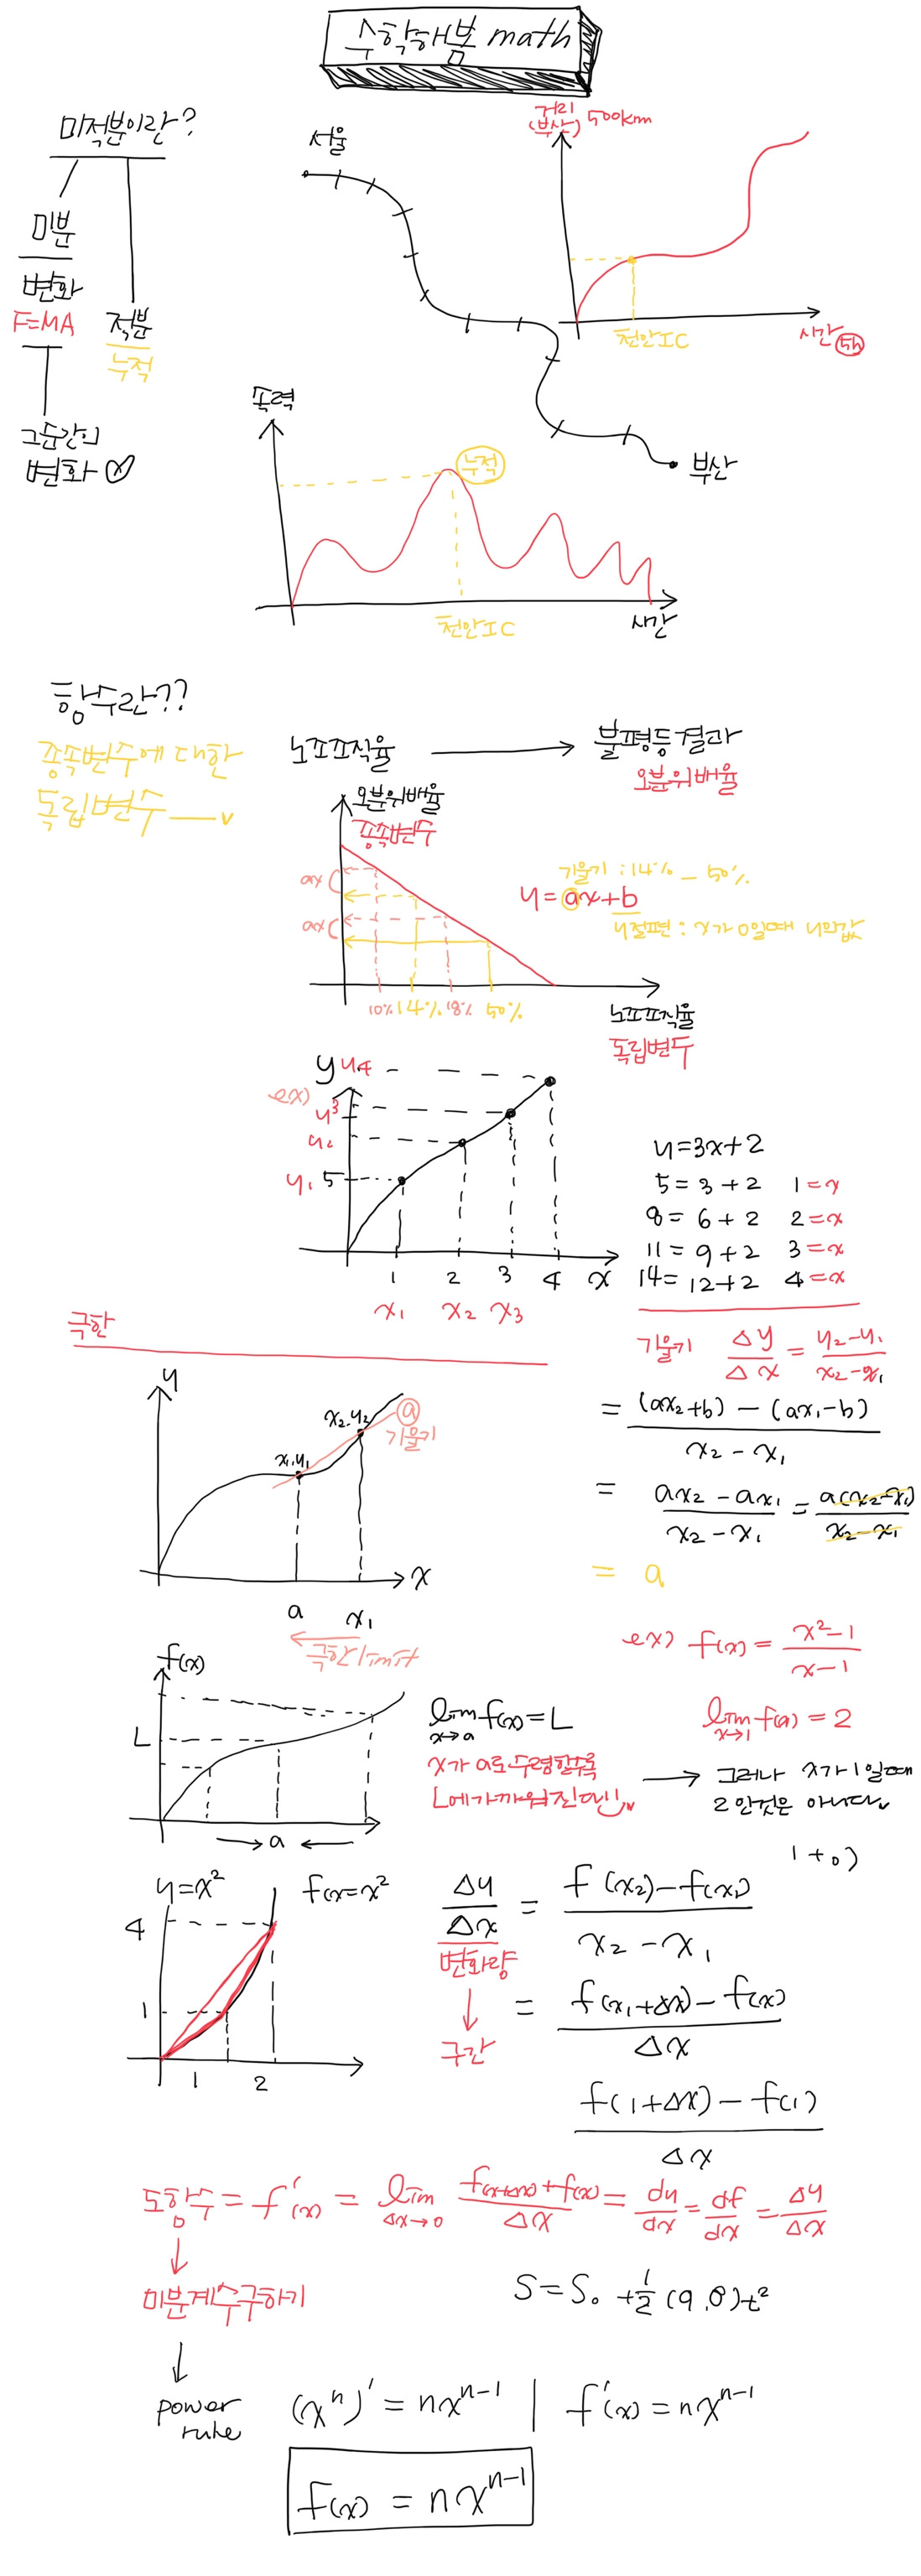 수학해봄 math
미적분이란?
미분
변화
F=MA
적분
누적
그순간의
변화
서울
부산
거리
(부산) 500km
천안IC
시간 5h
속력
누적
천안IC
시간
함수란??
종속변수에 대한
독립변수
노조조직율 → 불평등결과
오분위배율
오분위배율
종속변수
ax
ax
기울기 : 14% - 50%
y = ax+b
y절편 : x가 0일때 y의값
10% 14% 18% 50%
노조조직율
독립변수
ex)
y y4
y3
y2
y1 5
1 2 3 4 x
x1 x2 x3
y=3x+2
5 = 3 + 2 1=x
8 = 6 + 2 2=x
11 = 9 + 2 3=x
14 = 12+2 4=x
극한
기울기 Δy/Δx = y2-y1/x2-x1
= (ax2+b) - (ax1-b) / x2 - x1
= ax2 - ax1 / x2 - x1 = a(x2-x1) / x2-x1
= a
y
x1,y1
x2,y2
a
기울기
x
a x1
극한 limit
ex) f(x) = x²-1 / x-1
lim x→1 f(a) = 2
f(x)
L
→ a ←
lim x→a f(x) = L
x가 a로 수렴할수록
L에 가까워진다!!
→ 그러나 x가 1일때
2 인것은 아니다
1+0)
y=x² f(x=x²
4
1
1 2
Δy/Δx = f(x2)-f(x1) / x2-x1
변화량
↓
구간
= f(x1+Δx) - f(x) / Δx
f(1+Δx) - f(1) / Δx
도함수 = f'(x) = lim Δx→0 f(x+Δx)+f(x) / Δx = dy/dx = df/dx = Δy/Δx
↓
미분계수구하기
S = S0 + 1/2 (9.8)t²
↓
power
rule
(xⁿ)' = nxⁿ⁻¹ | f'(x) = nxⁿ⁻¹
f(x) = nxⁿ⁻¹